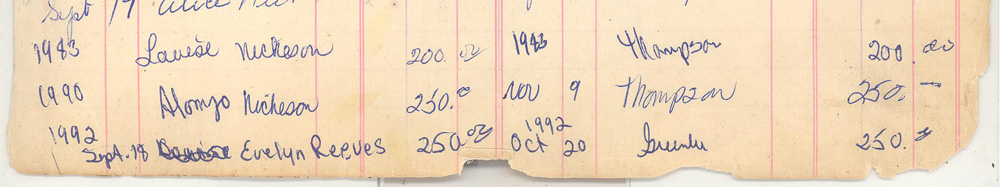 Sept 17 Alice
1983 Louise Nickeson 200.00 1983 Thompson 200.00
1990 Alonzo Nickeson 250.00 Nov 9 Thompson 250.—
1992
Sept. 18 Evelyn Reeves 250.00 Oct 1992 20 250.